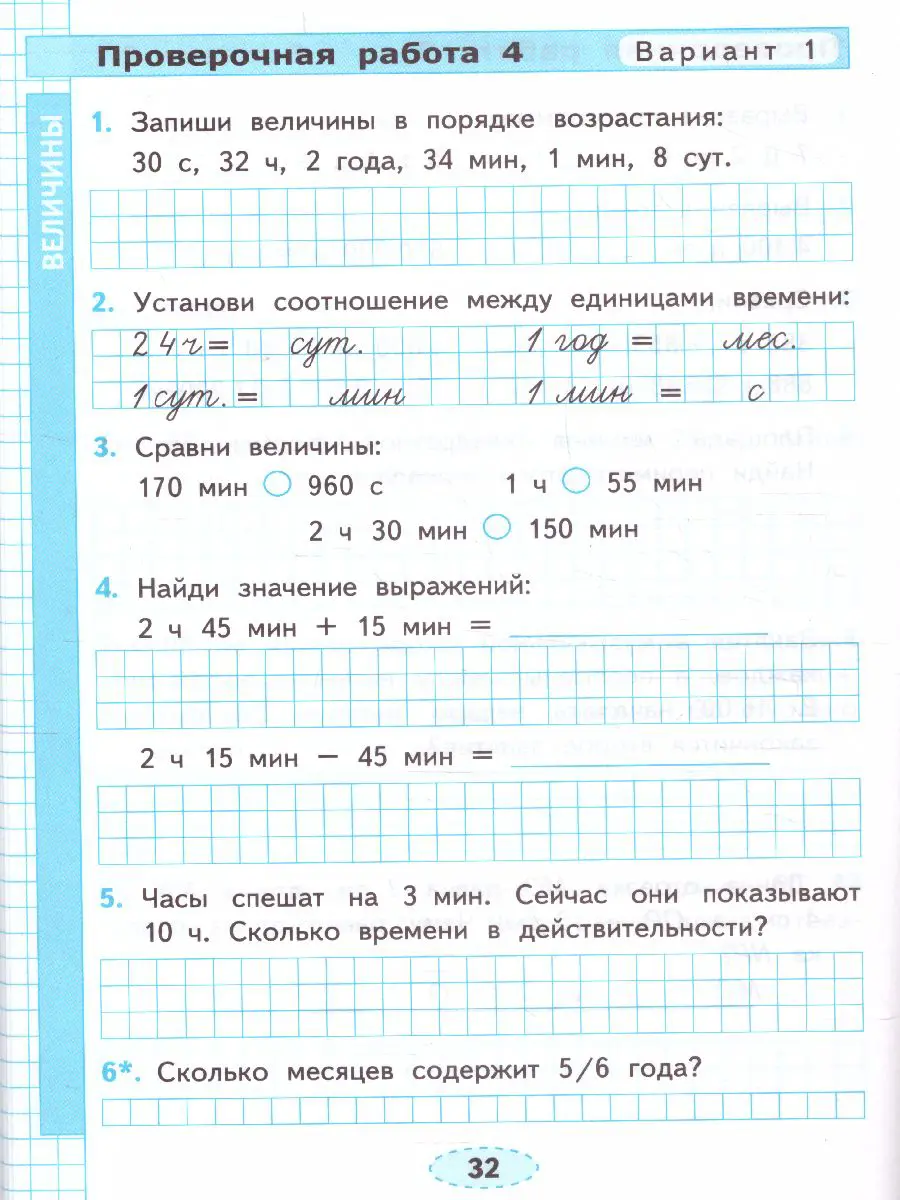 Проверочная работа 4 Вариант 1
ВЕЛИЧИНЫ
1. Запиши величины в порядке возрастания:
30 с, 32 ч, 2 года, 34 мин, 1 мин, 8 сут.
2. Установи соотношение между единицами времени:
24ч = сут. 1 год = мес.
1 сут. = мин 1 мин = с
3. Сравни величины:
170 мин 960 с 1 ч 55 мин
2 ч 30 мин 150 мин
4. Найди значение выражений:
2 ч 45 мин + 15 мин =
2 ч 15 мин − 45 мин =
5. Часы спешат на 3 мин. Сейчас они показывают
10 ч. Сколько времени в действительности?
6*. Сколько месяцев содержит 5/6 года?
32